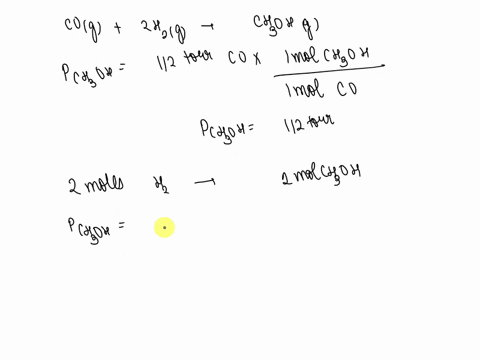 CO(g) + 2H₂(g) → CH₃OH g)
P CH₃OH = 112 torr CO × 1 mol CH₃OH / 1 mol CO
P CH₃OH = 112 torr
2 molls H₂ → 2 mol CH₃OH
P CH₃OH =